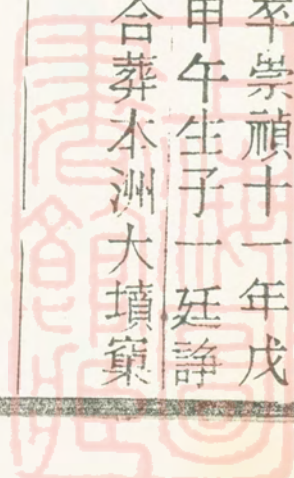 卒崇禎十一年戊
甲午生子一廷諍
合葬本洲大墳窠